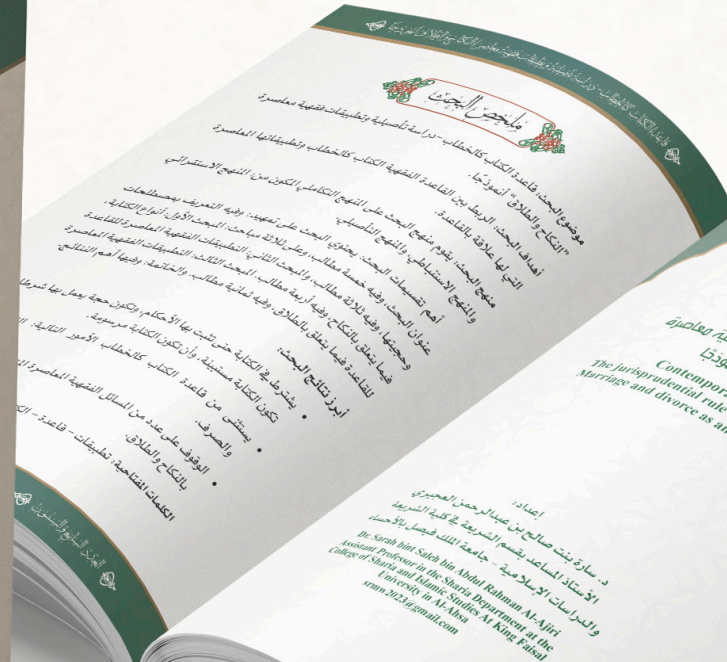 قاعدة الكتاب كالخطاب - دراسة تأصيلية وتطبيقات فقهية معاصرة النكاح والطلاق أنموذجًا
ملخص البحث
موضوع البحث: قاعدة الكتاب كالخطاب - دراسة تأصيلية وتطبيقات فقهية معاصرة
"النكاح والطلاق" أنموذجًا.
أهداف البحث: الربط بين القاعدة الفقهية الكتاب كالخطاب وتطبيقاتها المعاصرة
التي لها علاقة بالقاعدة.
منهج البحث: يقوم منهج البحث على المنهج التكاملي المكون من: المنهج الاستقرائي
والمنهج الاستنباطي، والمنهج التأصيلي.
أهم تقسيمات البحث: يحتوي البحث على تمهيد: وفيه التعريف بمصطلحات
عنوان البحث، وفيه خمسة مطالب، وعلى ثلاثة مباحث: المبحث الأول: أنواع الكتابة،
وحجيتها، وفيه ثلاثة مطالب، والمبحث الثاني: التطبيقات الفقهية المعاصرة للقاعدة
فيما يتعلق بالنكاح، وفيه أربعة مطالب، المبحث الثالث: التطبيقات الفقهية المعاصرة
للقاعدة فيما يتعلق بالطلاق، وفيه ثمانية مطالب، والخاتمة: وفيها أهم النتائج.
أبرز نتائج البحث:
• يشترط في الكتابة حتى تثبت بها الأحكام، وتكون حجة يعمل بها شرطان
تكون الكتابة مستبينة، وأن تكون الكتابة مرسومة.
• يستثنى من قاعدة الكتاب كالخطاب الأمور التالية:
والصرف.
• الوقوف على عدد من المسائل الفقهية المعاصرة
بالنكاح والطلاق.
الكلمات المفتاحية: تطبيقات - قاعدة -
العدد السابع والستون
معاصرة
Contempora
The jurisprudential rule
Marriage and divorce as an
إعداد:
د. سارة بنت صالح بن عبدالرحمن العجيري
الأستاذ المساعد بقسم الشريعة في كلية الشريعة
والدراسات الإسلامية - جامعة الملك فيصل بالأحساء
Dr. Sarah bint Saleh bin Abdul Rahman Al-Ajiri
Assistant Professor in the Sharia Department at the
College of Sharia and Islamic Studies At King Faisal
University in Al-Ahsa
srmw2023@gmail.com